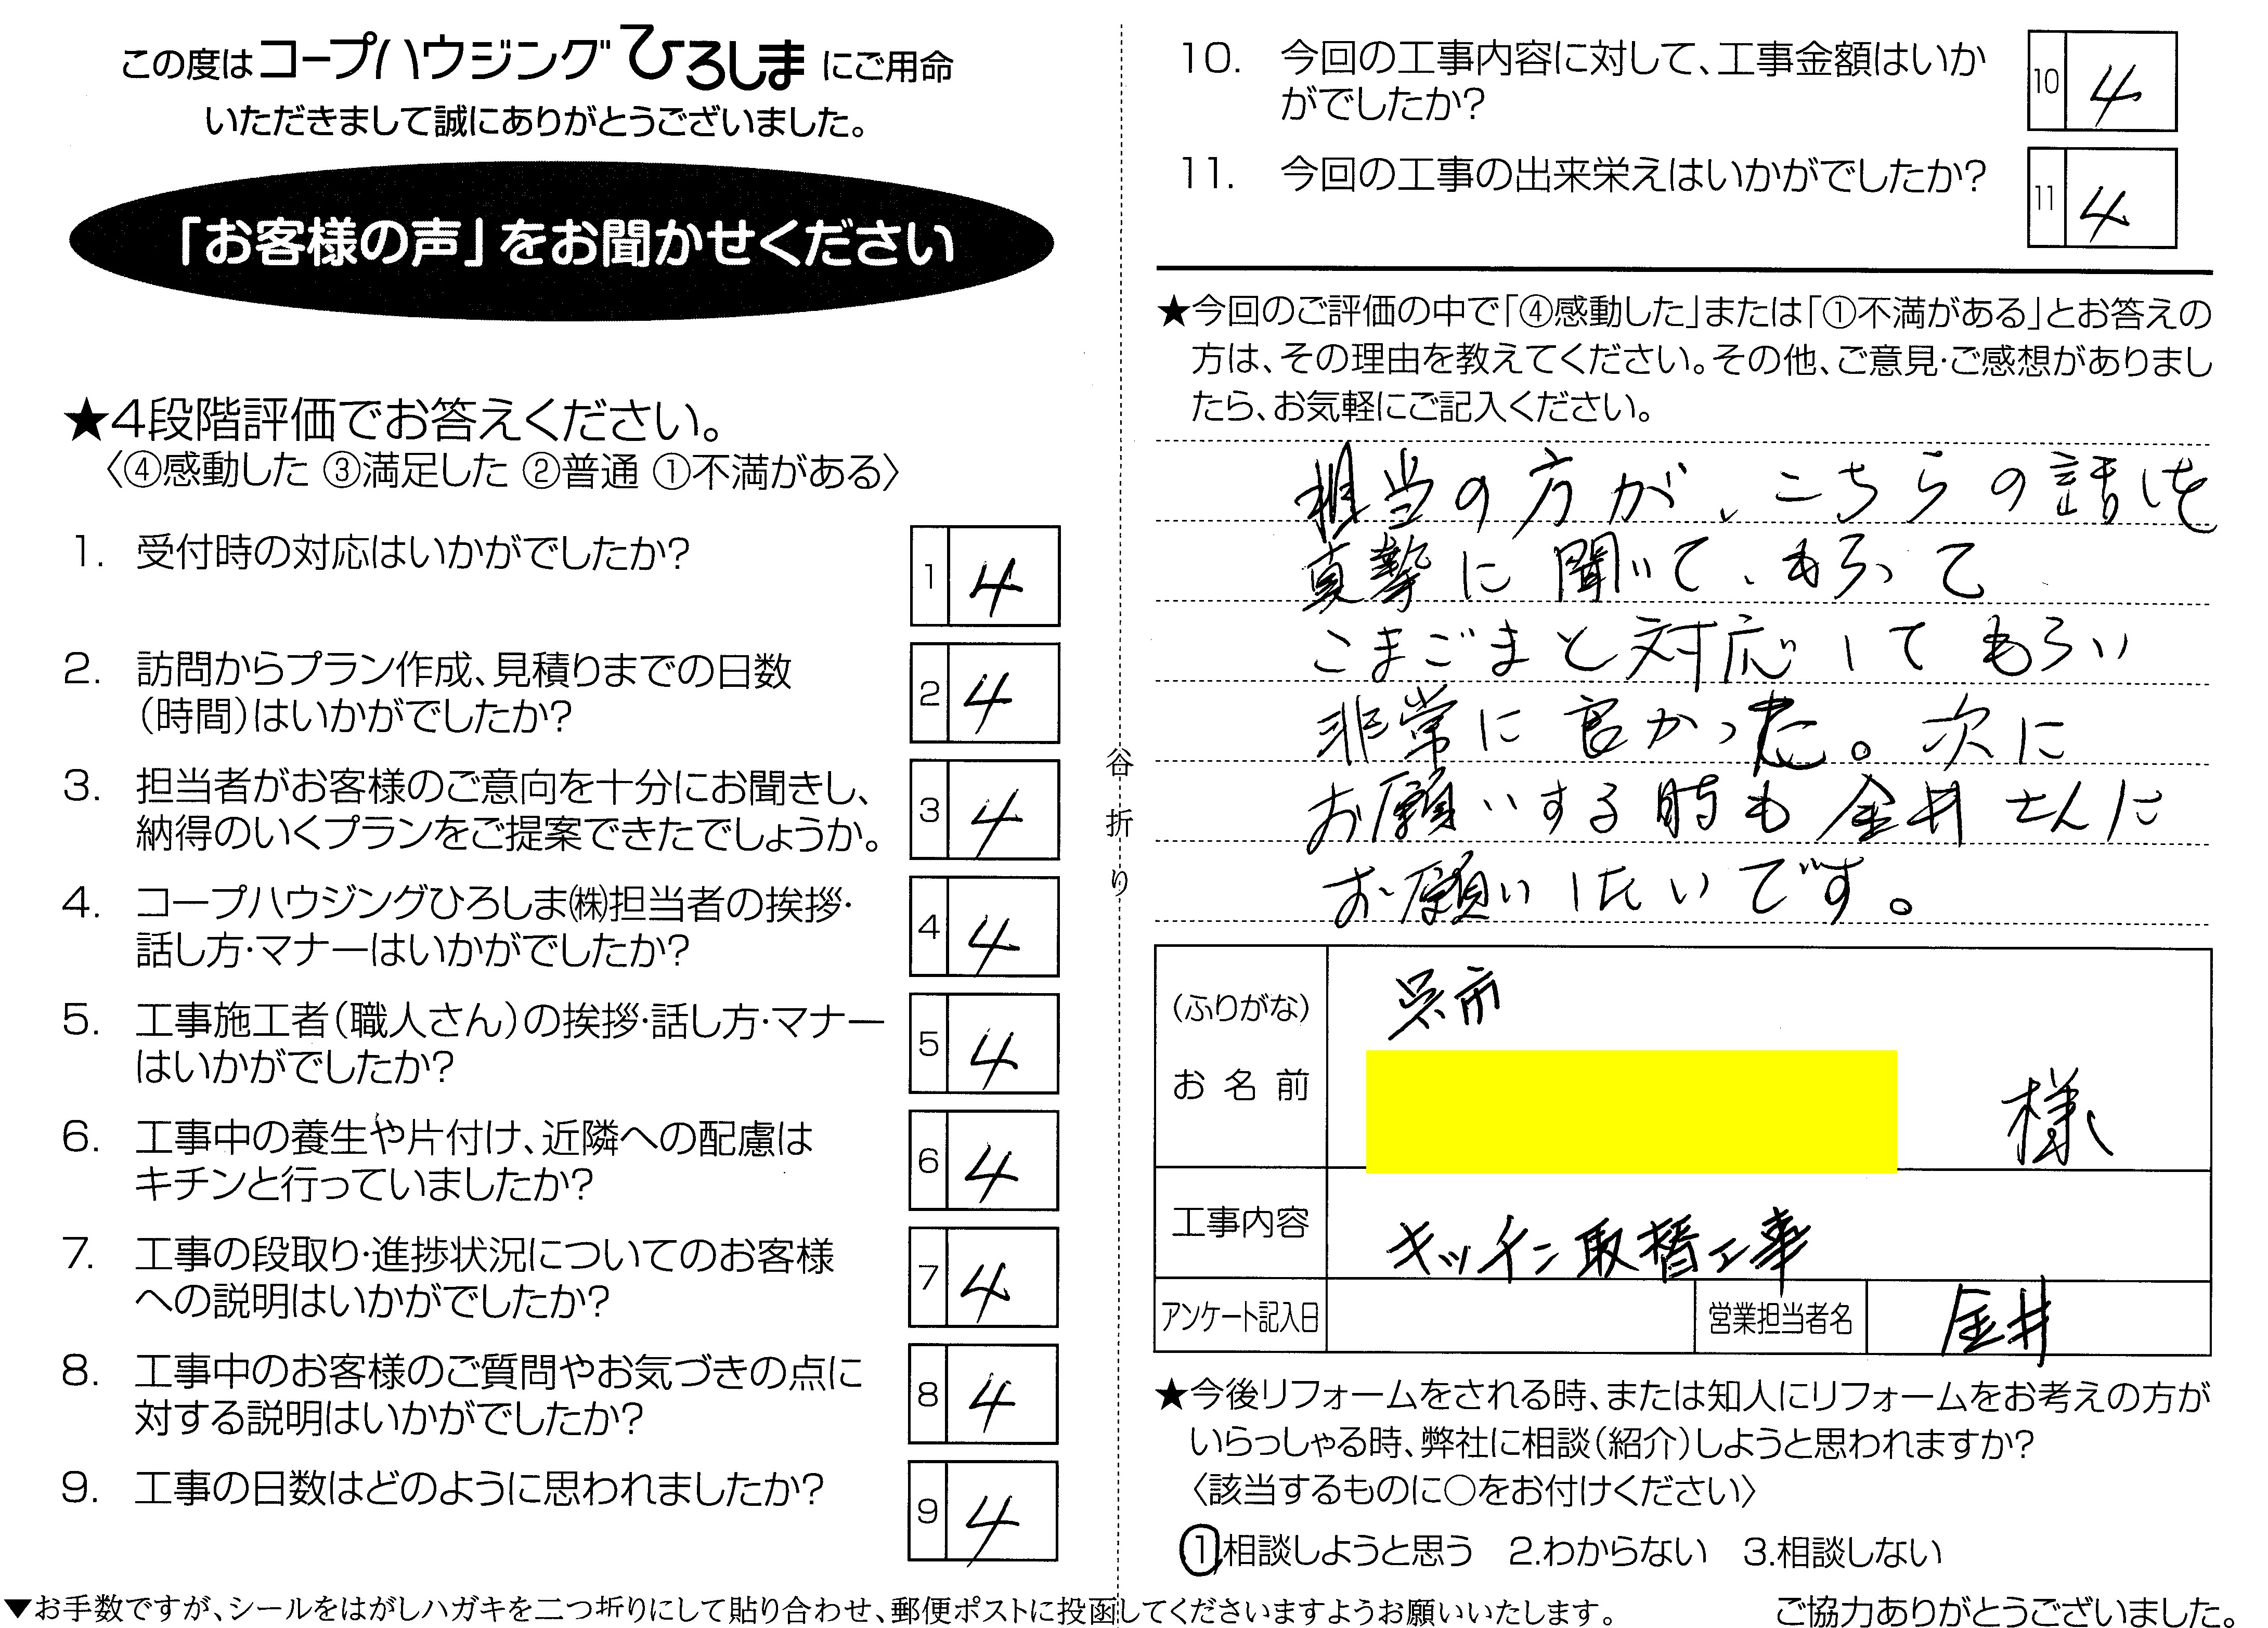 この度はコープハウジングひろしまにご用命
いただきまして誠にありがとうございました。
「お客様の声」をお聞かせください
★4段階評価でお答えください。
〈④感動した ③満足した ②普通 ①不満がある〉
1. 受付時の対応はいかがでしたか?
1 4
2. 訪問からプラン作成、見積りまでの日数
（時間）はいかがでしたか?
2 4
3. 担当者がお客様のご意向を十分にお聞きし、
納得のいくプランをご提案できたでしょうか。
3 4
4. コープハウジングひろしま㈱担当者の挨拶・
話し方・マナーはいかがでしたか?
4 4
5. 工事施工者（職人さん）の挨拶・話し方・マナー
はいかがでしたか?
5 4
6. 工事中の養生や片付け、近隣への配慮は
キチンと行っていましたか?
6 4
7. 工事の段取り・進捗状況についてのお客様
への説明はいかがでしたか?
7 4
8. 工事中のお客様のご質問やお気づきの点に
対する説明はいかがでしたか?
8 4
9. 工事の日数はどのように思われましたか?
9 4
▼お手数ですが、シールをはがしハガキを二つ折りにして貼り合わせ、郵便ポストに投函してくださいますようお願いいたします。
谷折り
10. 今回の工事内容に対して、工事金額はいか
がでしたか?
10 4
11. 今回の工事の出来栄えはいかがでしたか?
11 4
★今回のご評価の中で「④感動した」または「①不満がある」とお答えの
方は、その理由を教えてください。その他、ご意見・ご感想がありまし
たら、お気軽にご記入ください。
担当の方が、こちらの話しを
真摯に聞いて、もらって
こまごまと対応してもらい
非常に良かった。次に
お願いする時も金井さんに
お願いしたいです。
（ふりがな）
呉市
お名前
様
工事内容
キッチン取替工事
アンケート記入日
営業担当者名
金井
★今後リフォームをされる時、または知人にリフォームをお考えの方が
いらっしゃる時、弊社に相談（紹介）しようと思われますか?
〈該当するものに○をお付けください〉
①相談しようと思う 2.わからない 3.相談しない
ご協力ありがとうございました。